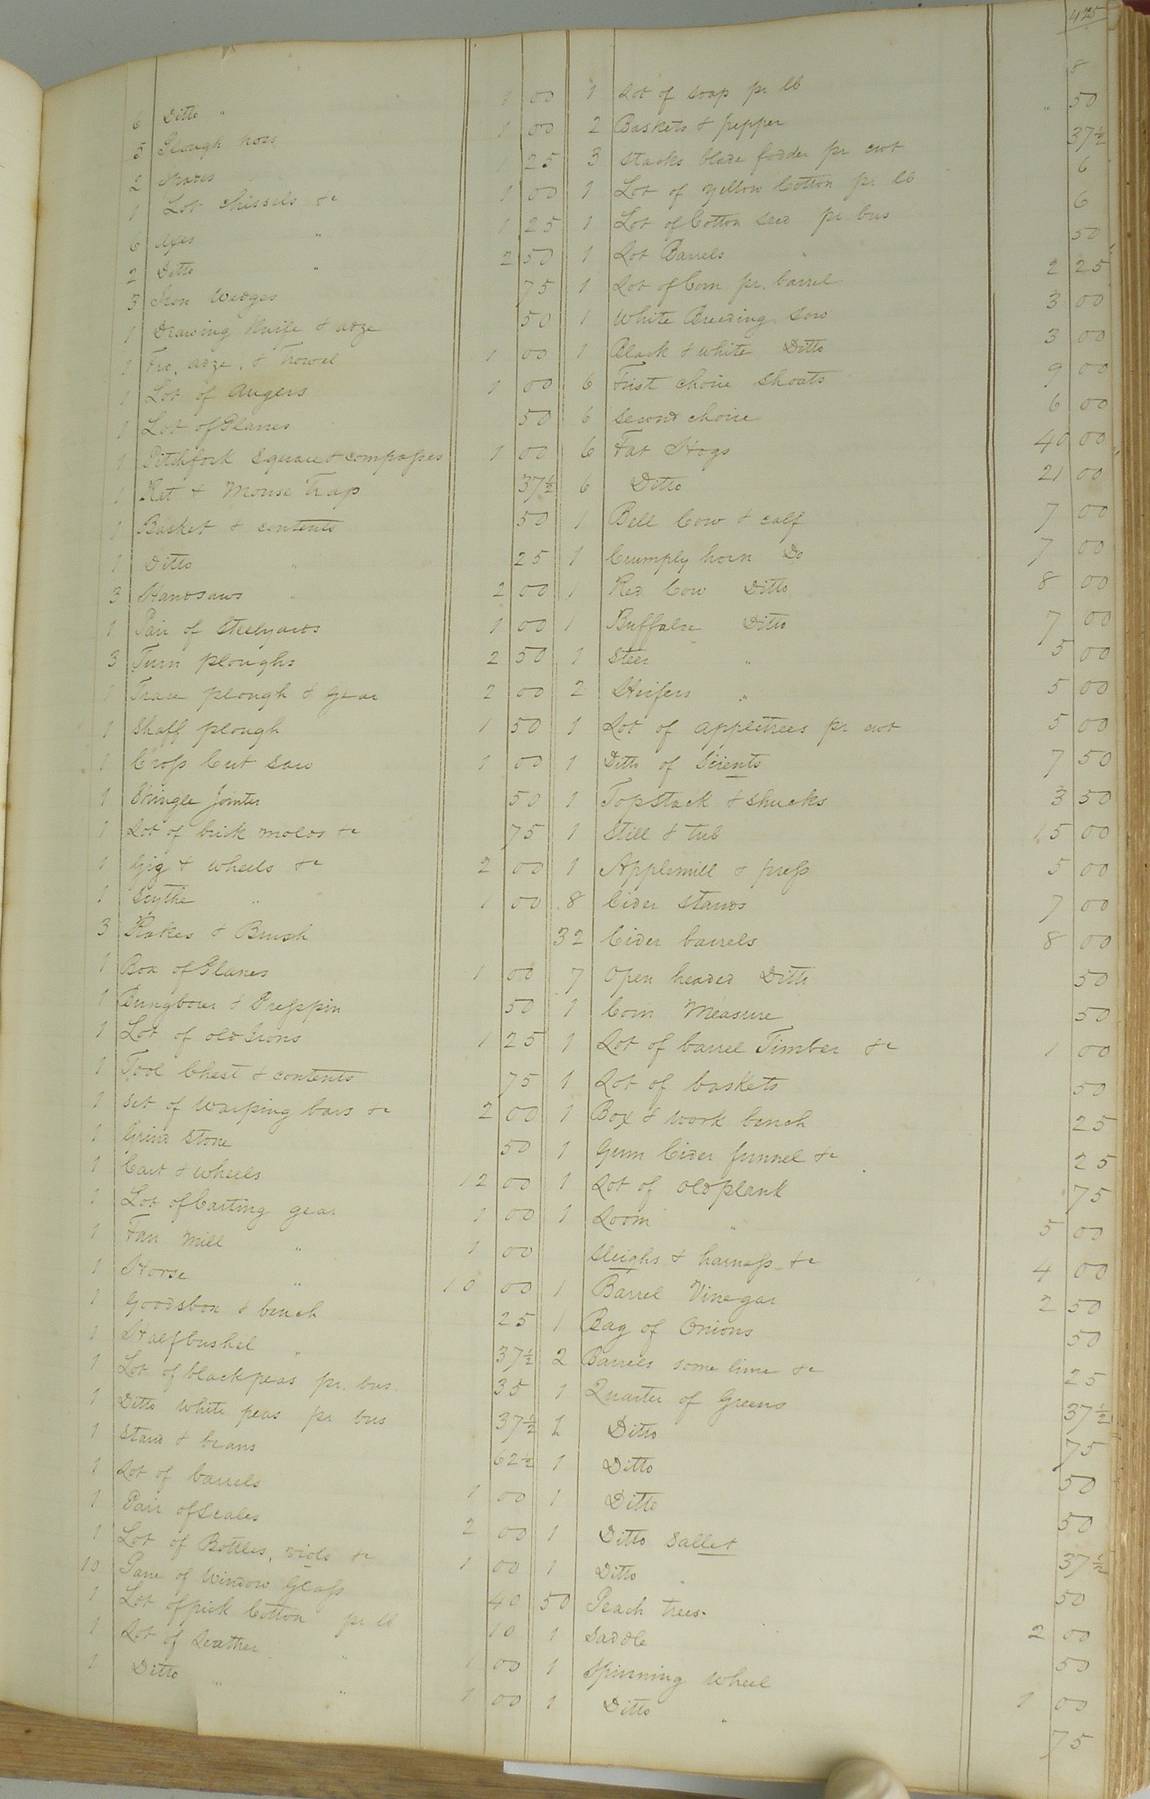 425
6 Ditto " 1 00
5 Plough hoes 1 00
2 Spades 25
1 Lot chissels &c 1 00
6 Axes " 1 25
2 Ditto " 2 50
3 Iron wedges 75
1 Drawing Knife & adze 50
1 Fro, adze, & Trowel 1 00
1 Lot of Augers 1 00
1 Lot of Planes 50
1 Pitchfork square & compasses 1 00
1 Rat & Mouse Trap 37½
1 Basket & contents 50
1 Ditto " 25
3 Handsaws 2 00
1 Pair of Steelyards 1 00
3 Turn ploughs 2 50
1 Trace plough & gear 2 00
1 Shaff plough 1 50
1 Cross Cut Saw 1 00
1 Shingle Jointer 50
1 Lot of brick molds &c 75
1 Gig & wheels &c 2 00
1 Scythe " 1 00
3 Rakes & Brush
1 Box of Planes 1 00
1 Bungborer & Presspin 50
1 Lot of old Irons 1 25
1 Tool Chest & contents 75
1 set of warping bars &c 2 00
1 Grind Stone 50
1 Cart & wheels 12 00
1 Lot of Carting gear 1 00
1 Fan Mill " 1 00
1 Horse " 10 00
1 Goodsbox & bench 25
1 Halfbushel " 37½
1 Lot of blackpeas pr. bus 35
1 Ditto white peas pr bus 37½
1 Stand & beans 62½
1 Lot of barrels 1 00
1 Pair of Scales 2 00
1 Lot of Bottles, viols &c 1 00
10 Pane of Window Glass 40
1 Lot of pick Cotton pr lb 10
1 Lot of Leather " 1 00
1 Ditto " " 1 00
1 Lot of soap pr lb 8
2 Baskets & pepper " 50
3 Stacks blade fodder pr cwt 37½
1 Lot of Yellow Cotton pr lb 6
1 Lot of Cotton seed pr bus 6
1 Lot Barrels " 50
1 Lot of Corn pr. barrel 2 25
1 White Breeding Sow 3 00
1 Black & white Ditto 3 00
6 First choice Shoats 9 00
6 Second choice 6 00
6 Fat Hogs 40 00
6 Ditto 21 00
1 Bell Cow & calf 7 00
1 Crumply horn Do 7 00
1 Red Cow Ditto 8 00
1 Buffaloe Ditto 7 00
1 Steer " 5 00
2 Heifers " 5 00
1 Lot of appletrees pr cwt 5 00
1 Ditto of Scients 7 50
1 Topstack & shucks 3 50
1 Still & tub 15 00
1 Applemill & press 5 00
8 Cider Stands 7 00
32 Cider barrels 8 00
7 Open headed Ditto 50
1 Corn Measure 50
1 Lot of barrel Timber &c 1 00
1 Lot of baskets 50
1 Box & work bench 25
1 Gum Cider funnel &c 25
1 Lot of old plank 75
1 Loom " 5 00
Sleighs & harness &c 4 00
1 Barrel Vinegar 2 50
1 Bag of Onions 50
2 Barrels some lime &c 25
1 Quarter of Greens 37½
1 Ditto 75
1 Ditto 50
1 Ditto 50
1 Ditto Sallet 37½
1 Ditto " 50
50 Peach trees 2 00
1 Saddle 50
1 Spinning Wheel 1 00
1 Ditto " 75